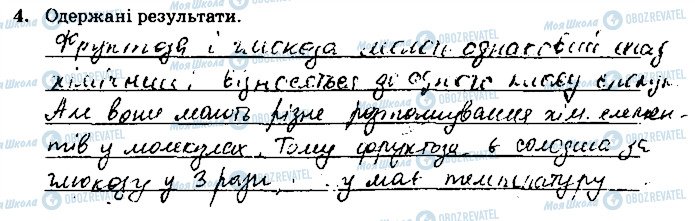 4. Одержані результати.
Фруктоза і глюкоза мають однаковий склад
хімічний і відносяться до одного класу сполук
Але вони мають різне розташування хім. елемен-
тів у молекулах. Тому фруктоза є солодша за
глюкозу у 3 рази, ... у має температуру